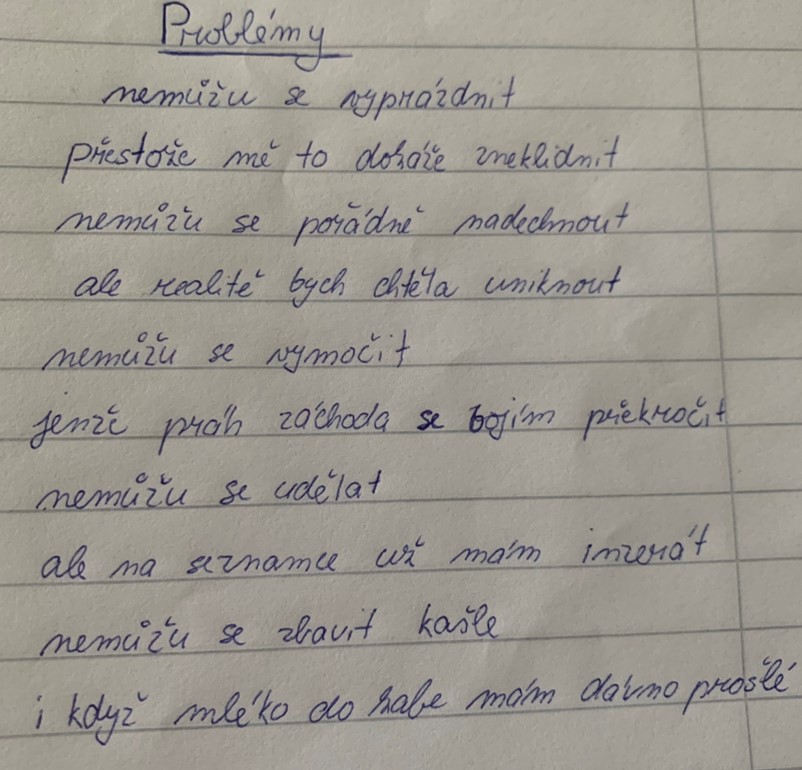 Problémy
nemůžu se vyprázdnit
přestože mě to dokáže zneklidnit
nemůžu se pořádně nadechnout
ale realitě bych chtěla uniknout
nemůžu se vymočit
jenže práh záchoda se bojím překročit
nemůžu se udělat
ale na seznamce už mám inzerát
nemůžu se zbavit kašle
i když mléko do kafe mám dávno prošlé